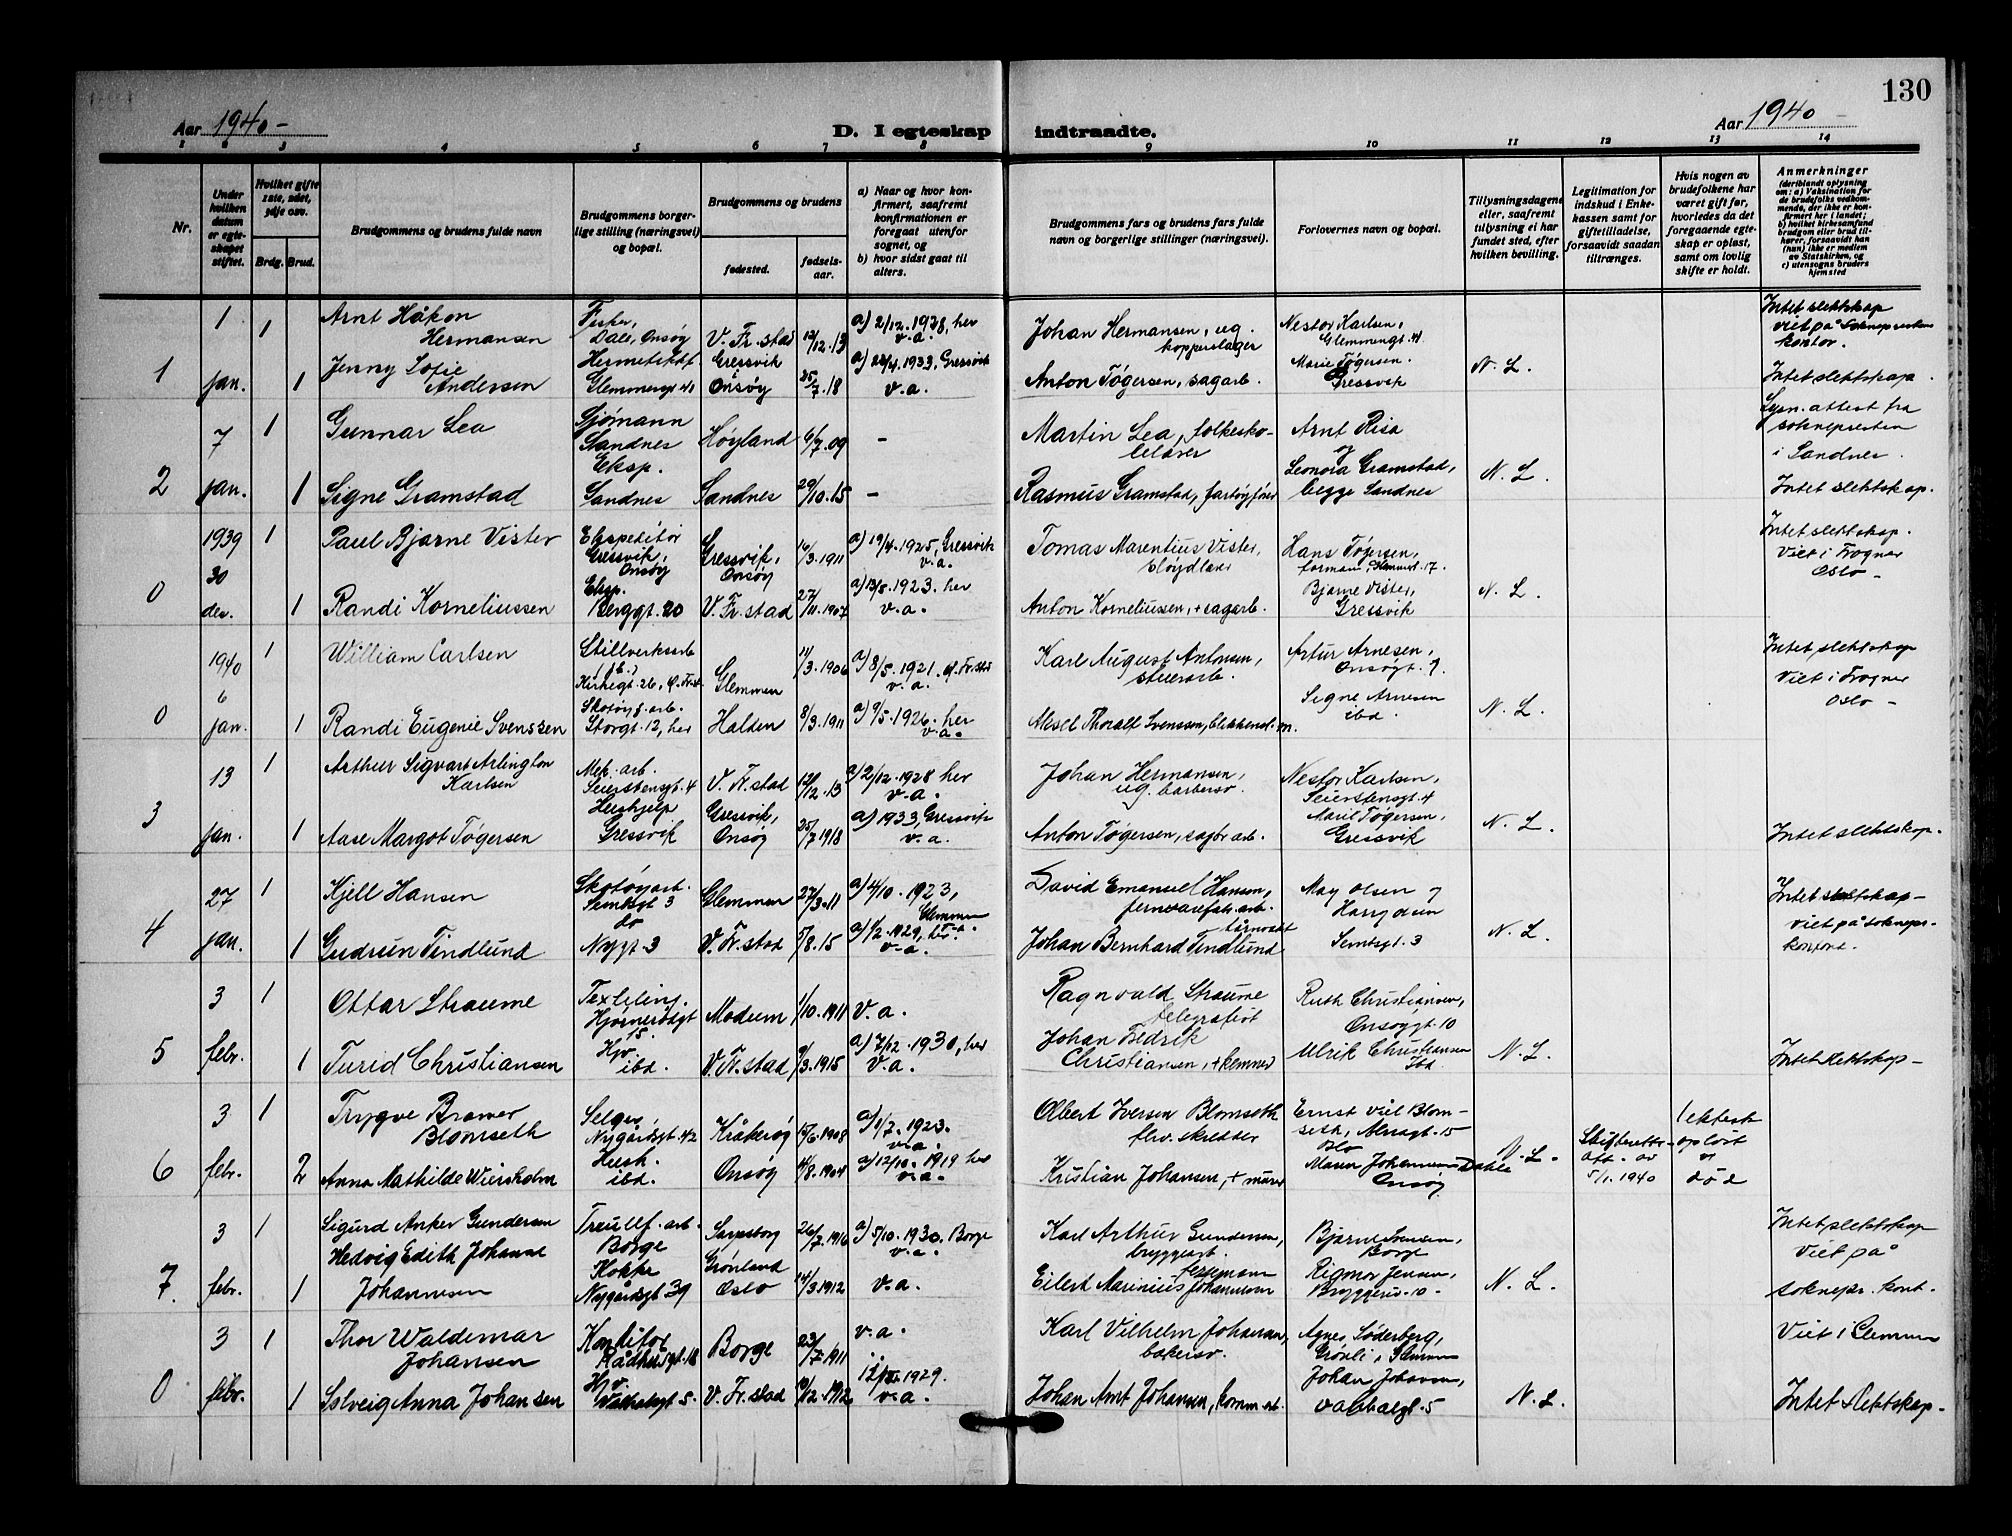 130
Aar 1940 -
D. I egteskap indtraadte.
Aar 1940 -
1 2 3 4 5 6 7 8 9 10 11 12 13 14
Nr.
Under hvilken datum er egteskapet stiftet.
Hvilket gifte 1ste, 2det, 3dje osv.
Brdg. Brud.
Brudgommens og brudens fulde navn
Brudgommens borgerlige stilling (næringsvei) og bopæl.
Brudgommens og brudens
fødested.
fødselsaar.
a) Naar og hvor konfirmert, saafremt konfirmationen er foregaat utenfor sognet, og
b) hvor sidst gaat til alters.
Brudgommens fars og brudens fars fulde navn og borgerlige stillinger (næringsvei).
Forlovernes navn og bopæl.
Tillysningsdagene eller, saafremt tillysning ei har fundet sted, efter hvilken bevilling.
Legitimation for indskud i Enkekassen samt for giftetilladelse, forsaavidt saadan tiltrænges.
Hvis nogen av brudefolkene har været gift før, hvorledes da det foregaaende egteskap er opløst, samt om lovlig skifte er holdt.
Anmerkninger
(deriblandt oplysning om: a) Vaksination for de brudefolks vedkommende, der ikke er konfirmert her i landet; b) hvilket kirkesamfund brudgom eller brud tilhører, forsaavidt han (hun) ikke er medlem av Statskirken, og c) utensogns bruders hjemsted
1 jan.
1 Arnt Håkon Hermansen
Fisker, Dale, Onsøy
V. Fr.stad
12/12.13
a) 2/12.1928, her v.a.
Johan Hermansen, ug. kopperslager
Nestor Karlsen, Glemmengt. 41
Intet slektskap viet på sokneprestens kontor.
1
1 Jenny Sofie Andersen
Glemmengt 41
Gressvik Onsøy
25/7.18
a) 22/4.1933, Gressvik v.a.
Anton Tøgersen, sagarb.
Marie Tøgersen. Gressvik
N. L.
Intet slektskap.
7 jan.
1 Gunnar Lea
Sjømann Sandnes
Høyland
6/7.09
-
Martin Lea, folkeskolelærer
Arnt Risa og
Lysn. attest fra soknepresten i Sandnes.
2
1 Signe Gramstad
Eksp. Sandnes
Sandnes
29/10.15
-
Rasmus Gramstad, fartøyfører
Leonora Gramstad, begge Sandnes
N. L.
Intet slektskap.
1939 30 des.
1 Paul Bjarne Vister
Ekspeditør Gressvik, Onsøy
Gressvik, Onsøy
16/3.1911
a) 19/4.1925, Gressvik v.a.
Tomas Marentius Vister, sløydlærer
Hans Tøgersen, formann, Glemmengt. 17.
Intet slektskap. Viet i Frogner Oslo -
0
1 Randi Korneliussen
Eksp. Berggt. 20
V. Fr.stad
27/11.1907
a) 13/5.1923. her v.a.
Anton Korneliussen, + sagarb.
Bjarne Vister, Gressvik
N. L.
1940 6 jan.
1 William Carlsen
Kirkegt. 26, Ø. Fr.st.
Glemmen
11/3.1906
a) 8/5.1921. Ø. Fr.std v.a.
Karl August Antonsen,
Artur Arnesen, Onsøgt. 7.
Intet slektskap Viet i Frogner Oslo -
0
1 Randi Eugenie Svenssen
Skotøyf.arb. Storgt. 12, her
Halden
8/3.1911
a) 9/5.1926. her v.a.
Aksel Thoralf Svenssen, blikkensl.m.
Signe Arnesen ibd.
N. L.
13 jan.
1 Arthur Sigvart Arlington Karlsen
Mek. arb. Seierstensgt. 4
V. Fr.stad
12/12.13
a) 2/12.1928 her v.a.
Johan Hermansen, ug. barbersv.
Nestor Karlsen, Seierstensgt. 4
3
1 Aase Margot Tøgersen
Hushjelp Gressvik
Gressvik, Onsøy
25/7.1918
a) 1933, Gressvik v.a.
Anton Tøgersen, sagbr.arb.
Marie Tøgersen, Gressvik
N. L.
Intet slektskap.
27 jan.
1 Kjell Hansen
Skotøyarb. Sentsgt 3
Glemmen
27/3.11
a) 4/10.1923, Glemmen v.a.
David Emanuel Hansen, jernvarefabr.arb.
May Olsen og Harry Olsen
Intet slektskap - viet på soknepr. kontort.
4
1 Gudrun Tindlund
do Nygt. 3
V. Fr.stad
5/8.15
a) 1/12.1929, her. v.a.
Johan Bernhard Tindlund tårnvakt
Sentsgt. 3
N. L.
3 febr.
1 Ottar Straume
Textiling. Hjørnerødgt 15.
Modum
1/10.1911
v.a.
Ragnvald Straume telegrafist
Ruth Christiansen, Onsøygt. 10
5
1 Turid Christiansen
Hjv. ibd.
V. Fr.stad
9/3.1915
a) 7/12.1930, her v.a.
Johan Fredrik Christiansen, + kemner
Ulrik Christiansen Ibd.
N. L.
Intet slektskap -
3 febr.
1 Trygve Brawer Blomseth
Selger, Nygårdsgt. 42
Kråkerøy
15/6.1908
a) 1/7.1923. v.a.
Albert Iversen Blomseth frv. skredder
Ernst Viel Blomseth, Akersgt. 15 Oslo
1 ektesk. opløst v. død
6
2 Anna Mathilde Wiersholm
Hush. ibd.
Onsøy
11/8.1904
a) 12/10.1919 her v.a.
Kristian Johansen, + murer
Maren Johannesen Dahle Onsøy
N. L.
Skifteretts- att. av 5/1.1940
3 febr.
1 Sigurd Anker Gundersen
Treullf. arb. Borge
Sarpsborg
26/7.1916
a) 5/10.1930. Borge v.a.
Karl Arthur Gundersen, bryggearb.
Bjarne Svensen, Borge
Intet slektskap Viet på soknepr. kont.
7.
1 Hedvig Edith Johanne Johannesen
Kokke Nygårdsgt 39
Grønland Oslo
14/3.1912
v.a.
Eilert Marinius Johannesen
Rigmor Jensen, Bryggeriv. 10 -
N. L.
3 febr.
1 Thor Waldemar Johansen
Konditor Rådhusgt. 18
Borge
23/7.1911
v.a.
Karl Vilhelm Johansen, bakersv.
Agnes Søderberg, Grønli i Glemmen
Viet i Glemmen
0
1 Solveig Anna Johansen
Hjv. Vabbelsgt 5.
V. Fr.stad
10/12.1912
1929. v.a.
Johan Arnt Johansen, komm.arb.
Johan Johansen, Vabbelgt. 5
N. L.
Intet slektskap -